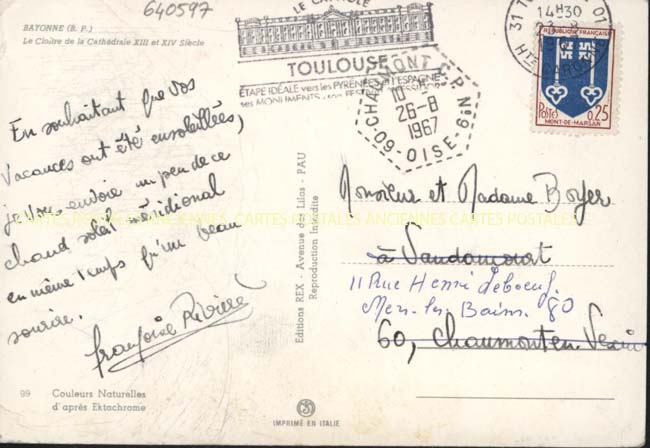 640597
BAYONNE (B. P.)
Le Cloître de la Cathédrale XIII et XIV Siècle
LE CAPITOLE
TOULOUSE
ÉTAPE IDÉALE vers les PYRÉNÉES et l'ESPAGNE
ses MONUMENTS
14H30
Hte GARONNE
CHAUMONT
10 H
26-8
1967
60-OISE
REPUBLIQUE FRANÇAISE
POSTES 0,25
MONT-DE-MARSAN
En souhaitant que vos
vacances ont été ensoleillées,
je vous envoie un peu de ce
chaud soleil méridional
en même temps qu'un beau
sourire.
françoise Rivière
99 Couleurs Naturelles
d'après Ektachrome
Editions REX - Avenue des Lilas - PAU
Reproduction Interdite
IMPRIMÉ EN ITALIE
Monsieur et Madame Boyer
à Vaudancourt
11 Rue Henri Leboeuf.
Mers-les Bains. 80
60, Chaumont en Vexin
CARTES POSTALES ANCIENNES. CARTES POSTALES ANCIENNES CARTES POSTALES